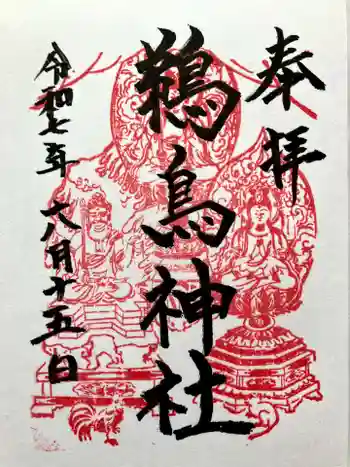 奉拝
鵜鳥神社
令和七年 六八月十五日